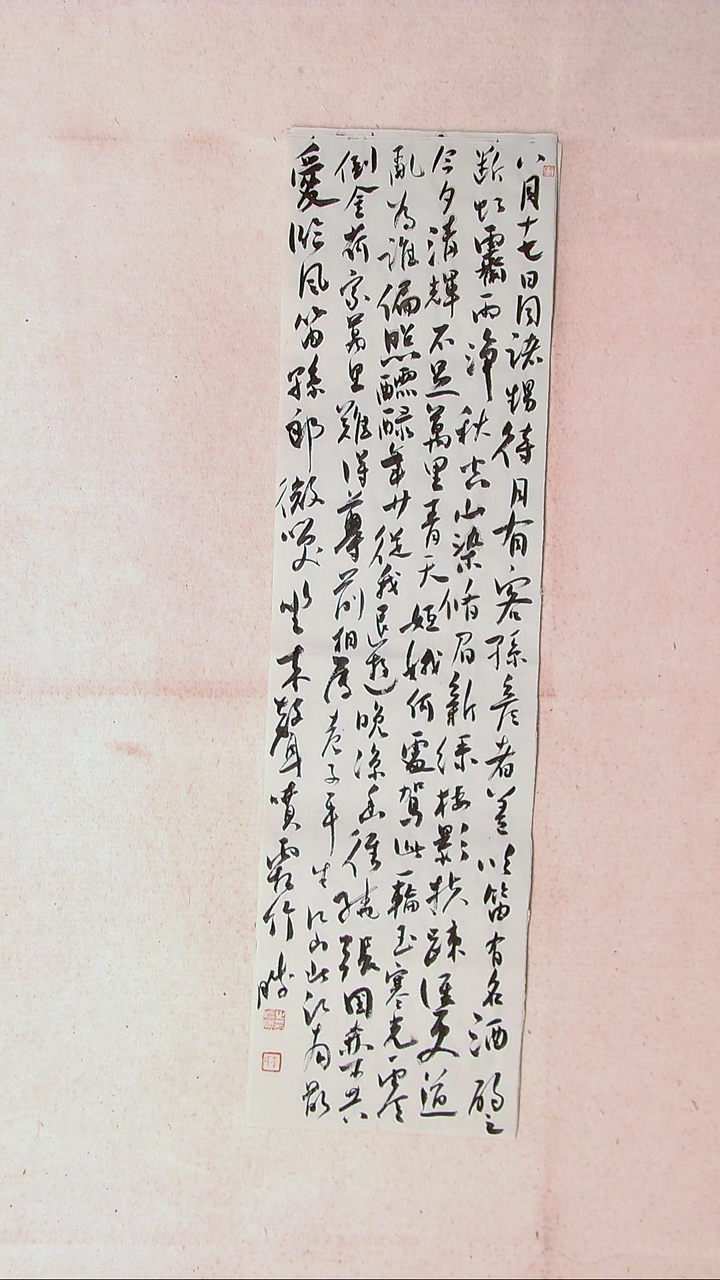 八月十七日同諸甥待月有客孫彦者善吹笛有名酒酌之
斷虹霽雨淨秋空山染脩眉新綠桂影扶疎誰更道
今夕清輝不足萬里青天姮娥何處駕此一輪玉寒光零
亂為誰偏照醽醁年少從我追遊晚涼幽徑繞張園森木共
倒金荷家萬里難得尊前相属老子平生江北江南最
愛臨風笛孫郎微笑坐來聲噴霜竹